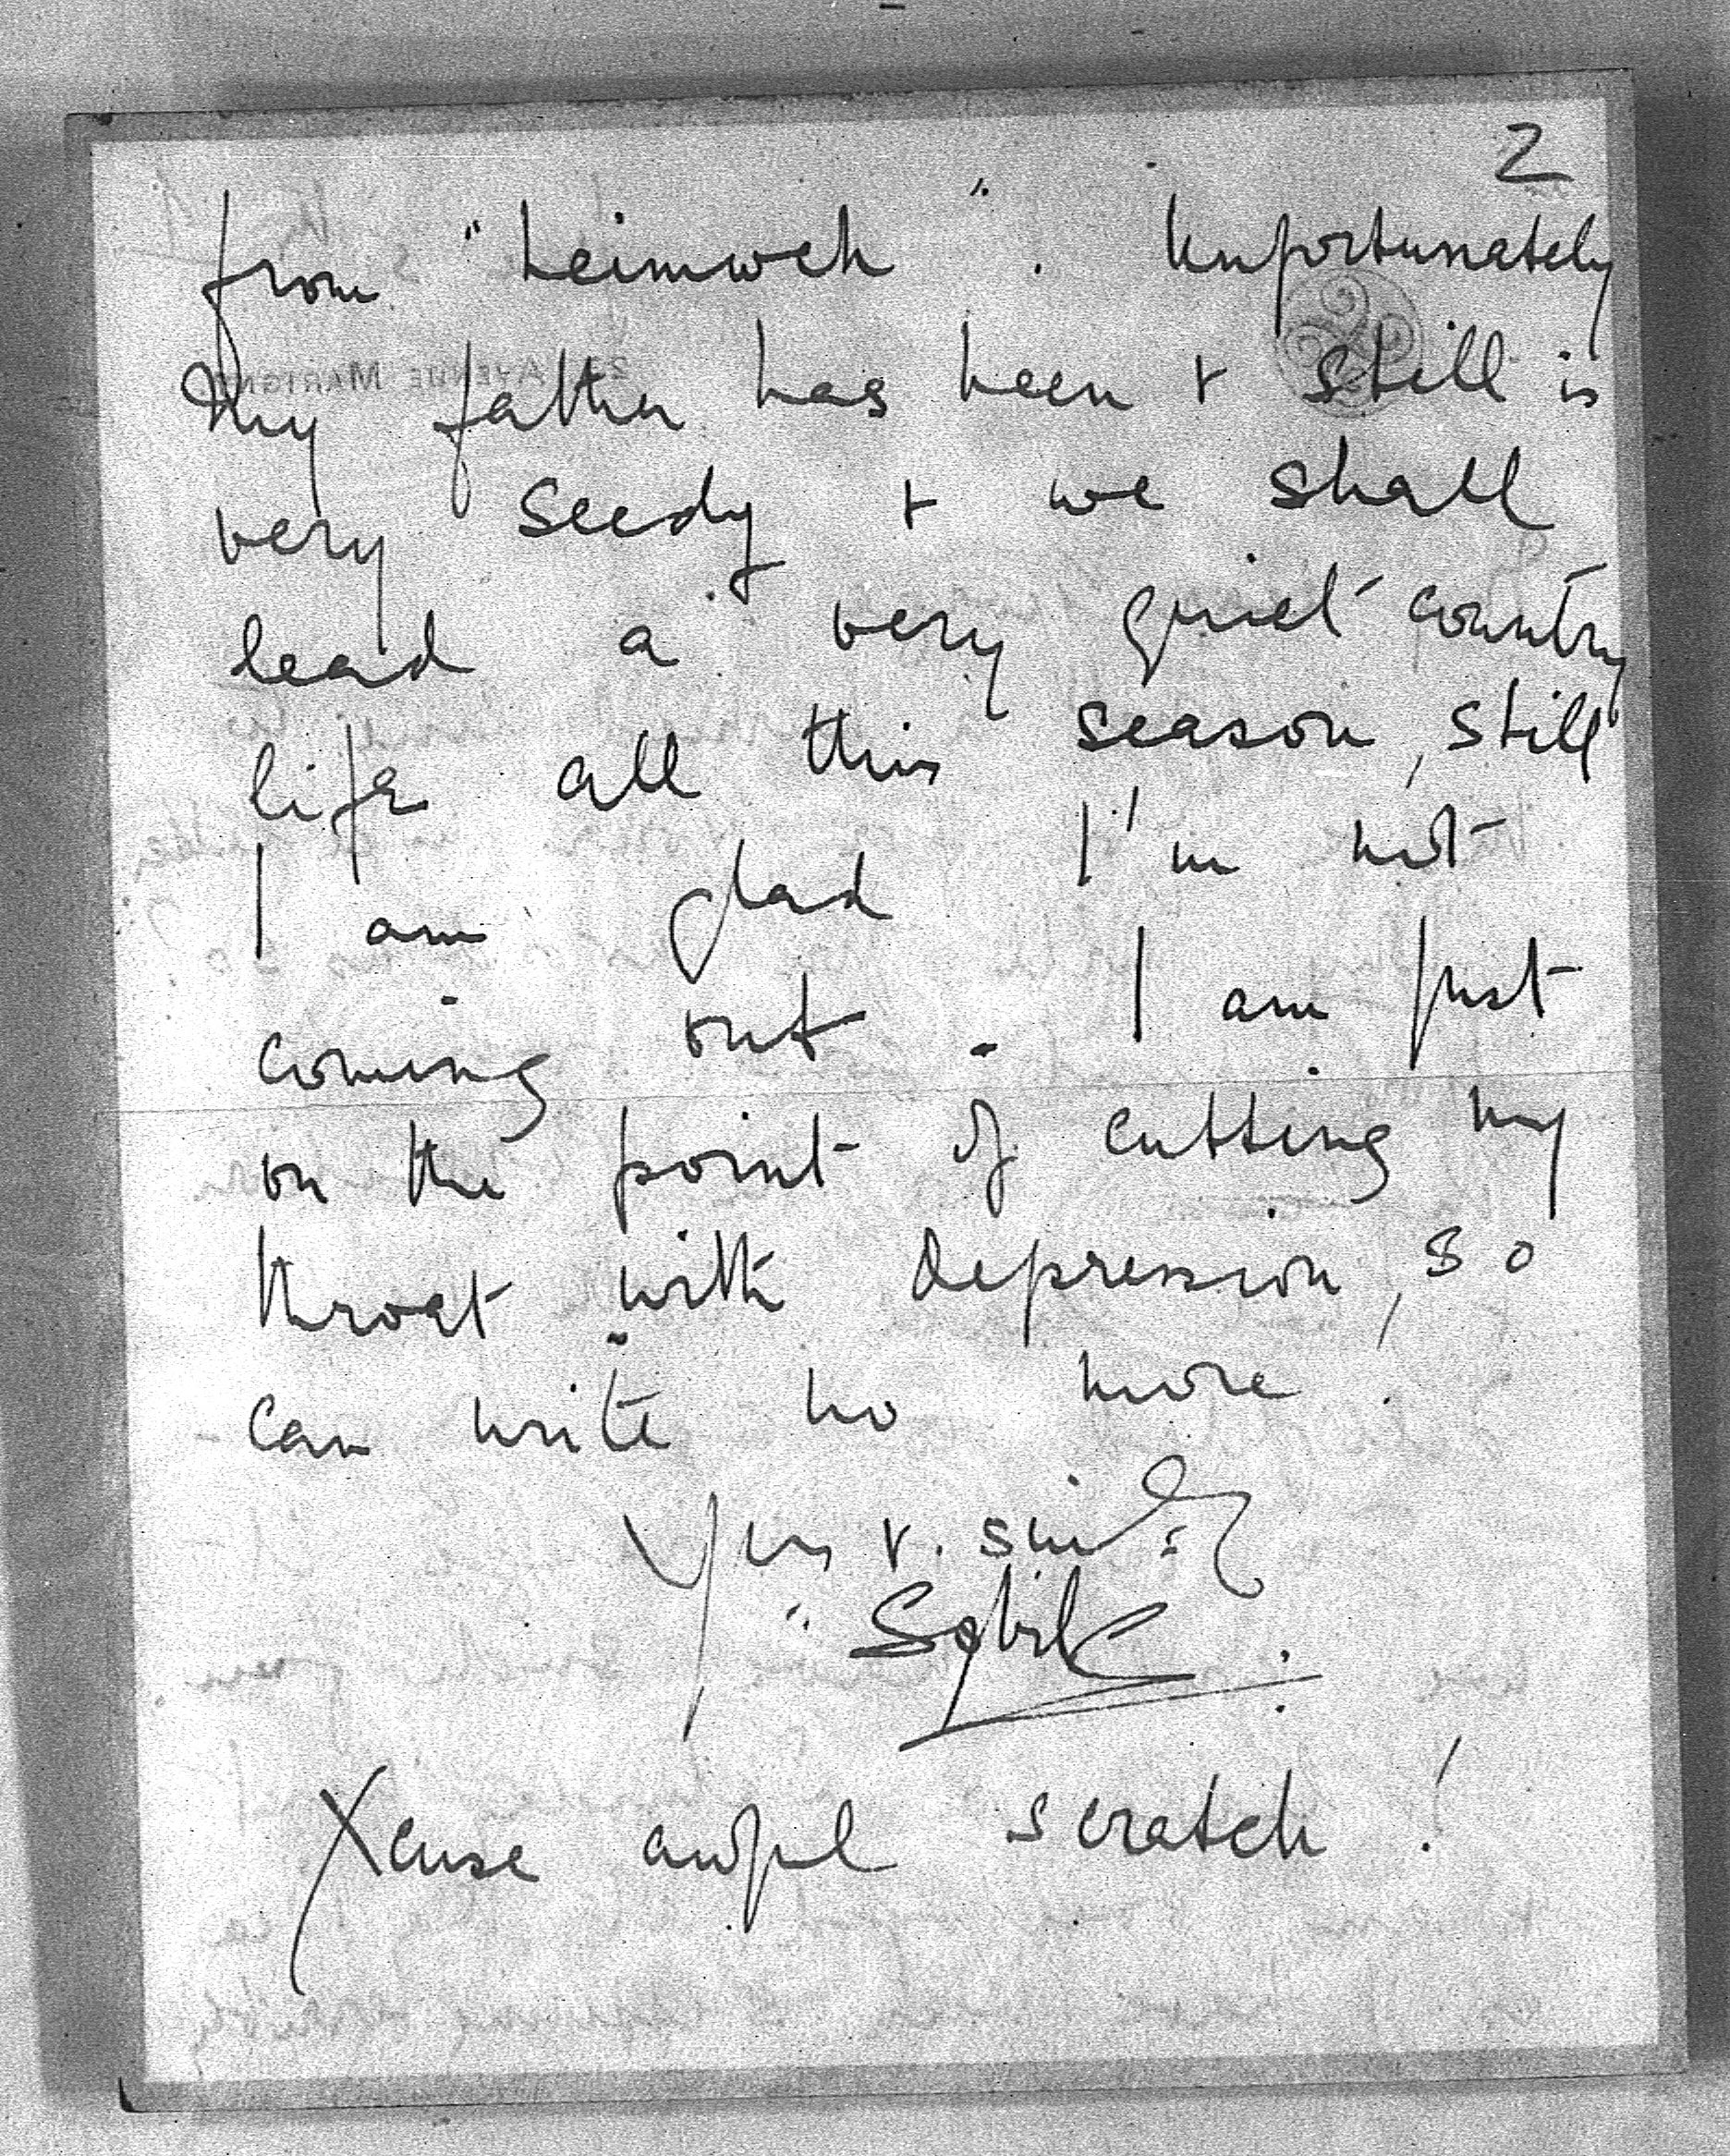 2
from "heimweh". Unfortunately
my father has been + still is
very seedy + we shall
lead a very quiet country
life all this season, still
I am glad I'm not
coming out. I am just
on the point of cutting my
throat with depression, so
can write no more.
Yrs v.
Sybil
Xcuse awful scratch!
AVENUE MARIGNY